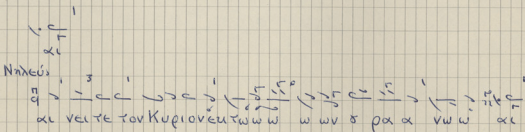 αι
Νηλεύς
αι νει τε τον Κυριον εκ τω ω ω ω ω ων ȣ ρα α νω ω αι